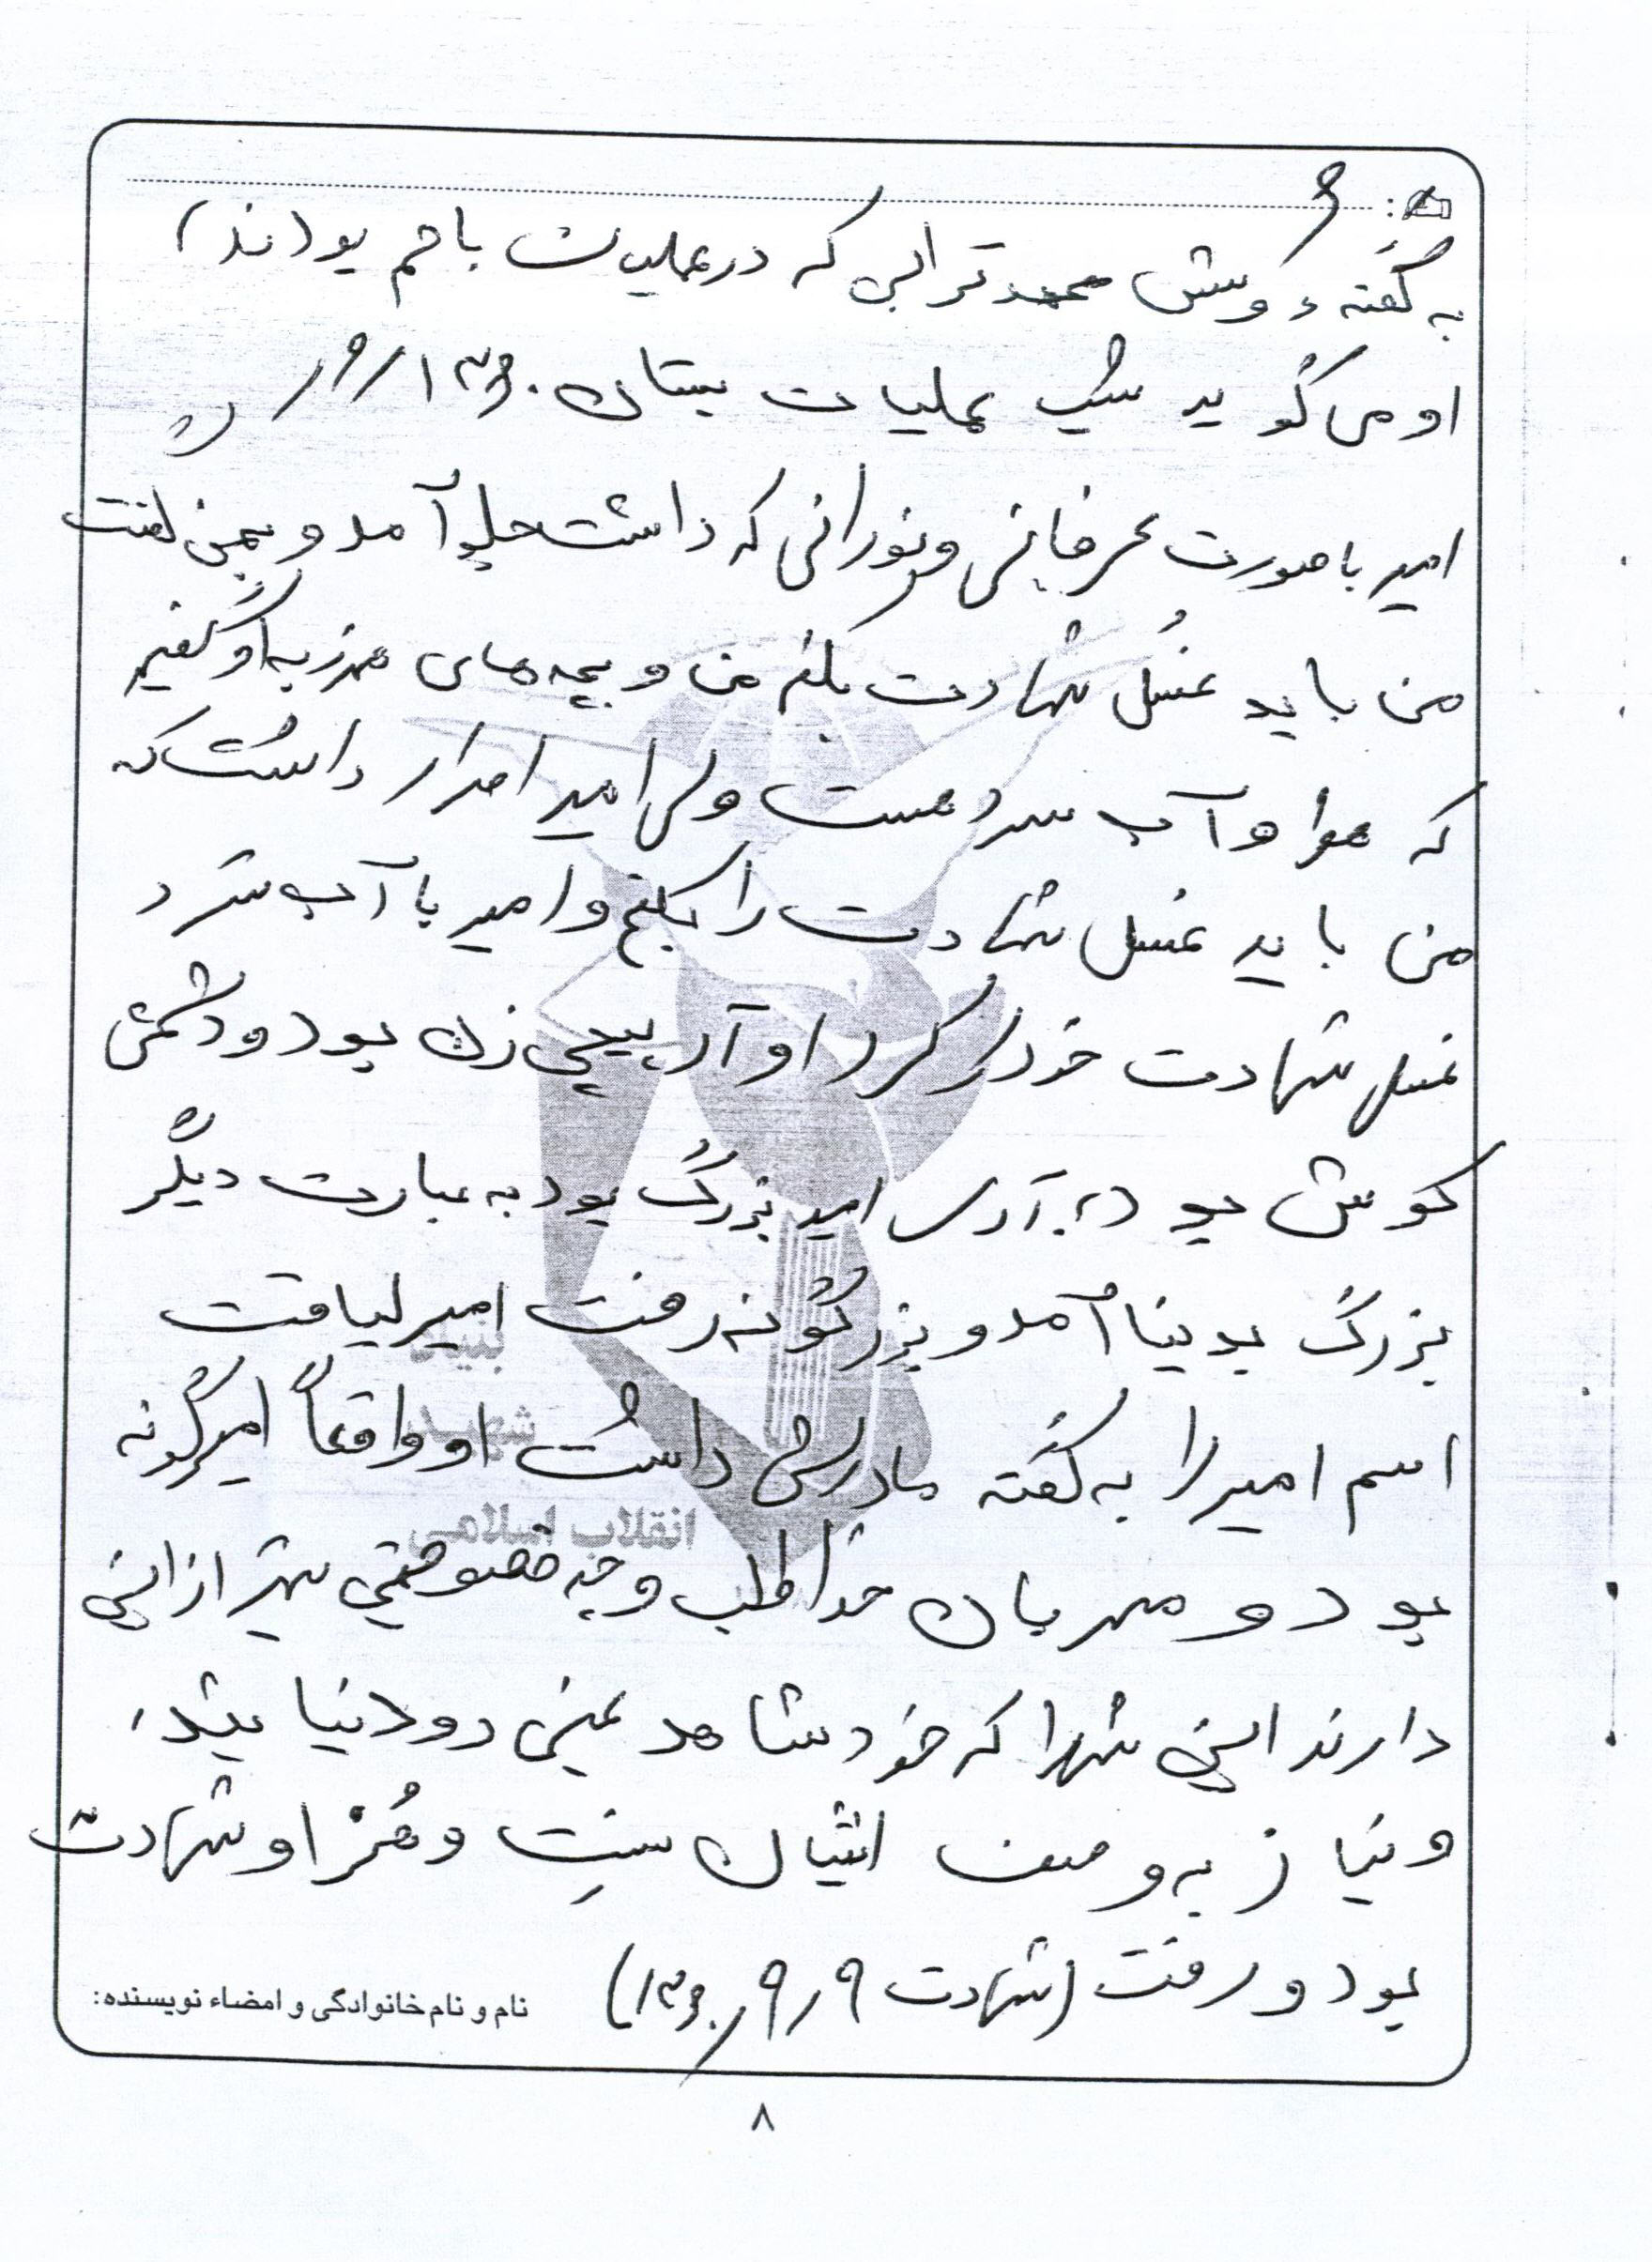 ۶
به گفته دوستش محمد ترابی که در عملیات با هم بودند)
او می گوید شب عملیات بستان ۱۳۶۰/۹/
امیر با صورت عرفانی و نورانی که داشت جلو آمد و بمن گفت
من باید غسل شهادت بکنم من و بچه های همرزم به او گفتیم
که هوا و آب سرد هست ولی امیر اصرار داشت که
من باید غسل شهادت را بکنم و امیر با آب سرد
غسل شهادت خود را کرد او آر پی جی زن بود و دشمن
کوش بود. آری امیر بزرگ بود به عبارت دیگر
بزرگ بدنیا آمد و بزرگونه رفت امیر لیاقت
اسم امیر را به گفته مادرش داشت او واقعاً امیرگونه
بود و مهربان خداطلب و چه خصوصیتی بهتر از این
دارند این شهدا که خود شاهد عینی دو دنیا
و نیاز به وصف ایشان نیست و هُنر او شهادت
بود و رفت (شهادت ۱۳۶۰/۹/۹)
نام و نام خانوادگی و امضاء نویسنده:
۸
بنیاد
شهید
انقلاب اسلامی